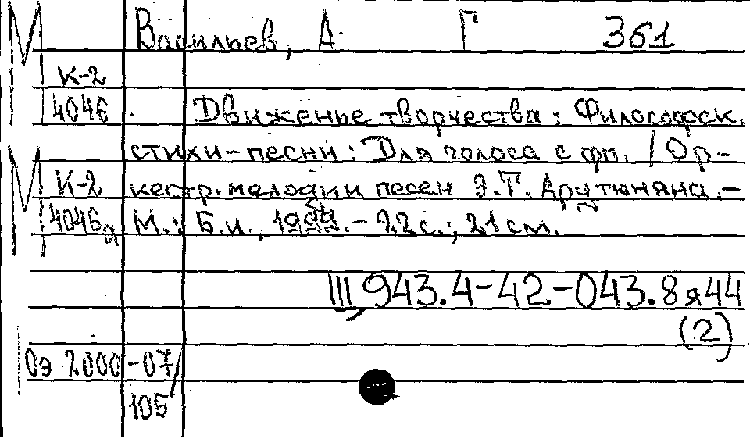 М Васильев, А. Г 361
К-2
4046 Движенье творчества: Философск.
стихи-песни: Для голоса с фп. / Ор-
М К-2 кестр. мелодии песен Э.Т. Арутюняна. -
4046а М.: Б.и., 1999. - 22 с.; 21 см.
Щ 943.4-42-043.8я44
(2)
Оэ 2000-07/
105